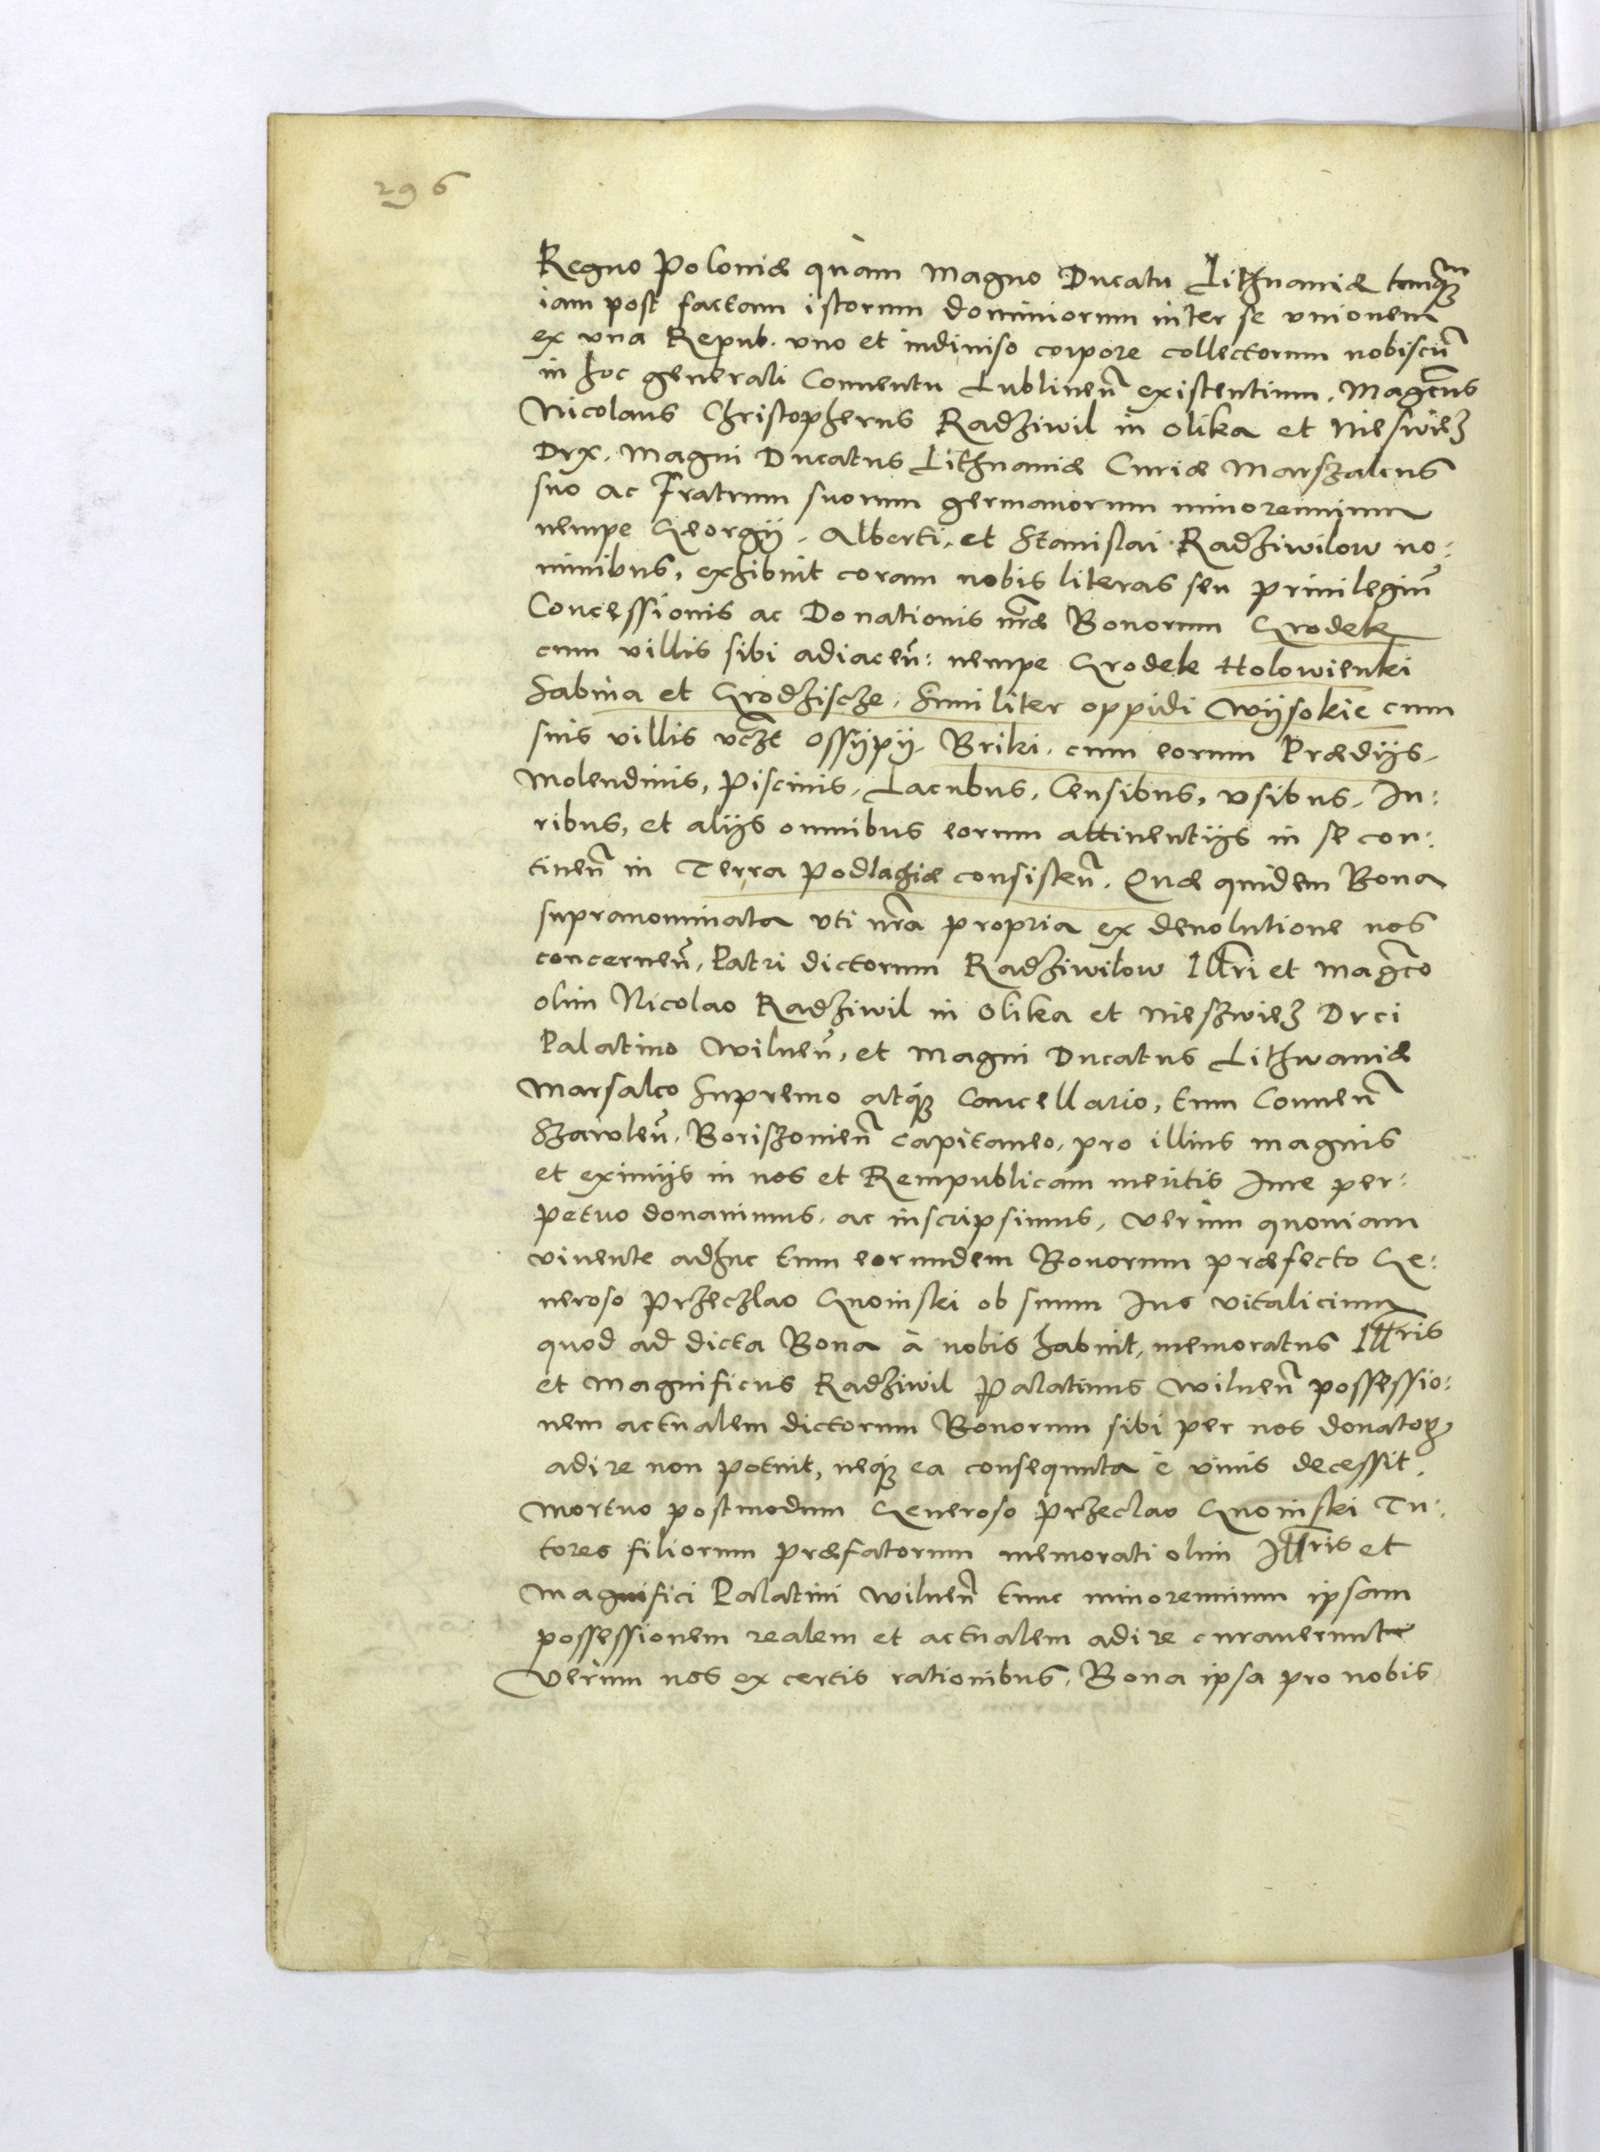 296
Regno Poloniæ quàm Magno Ducatu Lithuaniæ
iam post factam istorum dominiorum inter se unionem
ex una Repub. uno et indiuiso corpore collectorum nobiscũ
in hoc generali Conuentu Lublineñ existentium. Magcus
Nicolaus Christopherus Radziwil in Olika et Nieswiez
Dux. Magni Ducatus Lithuaniæ Curiæ Marszalcus
suo ac Fratrum suorum germanorum minorennium
nempe Georgij. Alberti, et Stanislai Radziwilow no:
minibus, exhibuit coram nobis literas seu priuilegiũ
Concessionis ac Donationis nræ Bonorum Grodek
cum villis sibi adiaceñ: nempe Grodek Holowienki
Sabnia et Grodziscze. Similiter oppidi Wijsokie cum
suis villis Ossijpij. Briki. cum eorum Prædijs.
Molendinis, Piscinis, Lacubus, Censibus, usibus, Iu:
ribus, et alijs omnibus eorum attinentijs in se con:
tineñ in Terra Podlachiæ consisteñ. Quæ quidem Bona
supranominata uti nra propria ex deuolutione nos
concerneñ, Patri dictorum Radziwilow Illri et Magco
olim Nicolao Radziwil in Olika et Nieszwiez Duci
Palatino Wilneñ, et Magni Ducatus Lithwaniæ
Marsalco Supremo atq; Cancellario, tum Conueñ
Szawleñ, Boriszouieñ Capitaneo, pro illius magnis
et eximijs in nos et Rempublicam meritis Iure per:
petuo donauimus, ac inscripsimus, Verùm quoniam
viuente adhuc tum eorundem Bonorum præfecto Ge:
neroso Przeczlao Gnoinski ob suum Ius vitalicium
quod ad dicta Bona à nobis habuit, memoratus Illris
et Magnificus Radziwil Palatinus Wilneñ possessio:
nem actualem dictorum Bonorum sibi per nos donatoꝝ
adire non potuit, neq; ea consequuta è viuis decessit.
Mortuo postmodum Generoso Przeclao Gnoinski Tu:
tores filiorum præfatorum memorati olim Illris et
Magnifici Palatini Wilneñ tunc minorennium ipsam
possessionem realem et actualem adire curauerunt
Verùm nos ex certis rationibus, Bona ipsa pro nobis